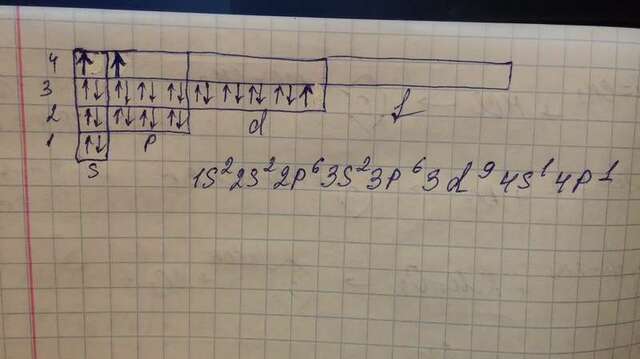 4 ↑ ↑
3 ↑↓ ↑↓ ↑↓ ↑↓ ↑↓ ↑↓ ↑↓ ↑↓ ↑
2 ↑↓ ↑↓ ↑↓ ↑↓ d f
1 ↑↓ p
s
1s²2s²2p⁶3s²3p⁶3d⁹4s¹4p¹